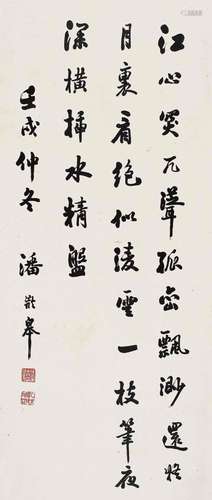 江心突兀聳孤巒飄渺還疑
月裏看絕似凌雲一枝筆夜
深橫插水精盤
壬戌仲冬 潘齡皋